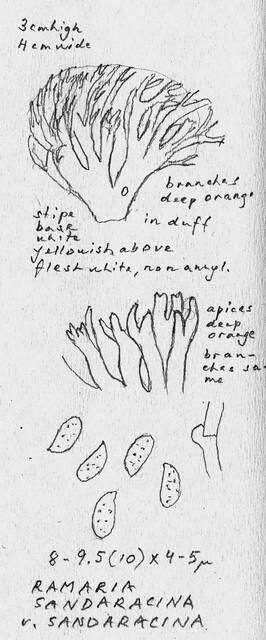 3cm high
4cm wide
branches
deep orange
in duff
stipe
base
white
yellowish above
flesh white, non amyl.
apices
deep
orange
bran-
ches sa-
me
8-9.5(10) x 4-5µ
RAMARIA
SANDARACINA
v. SANDARACINA